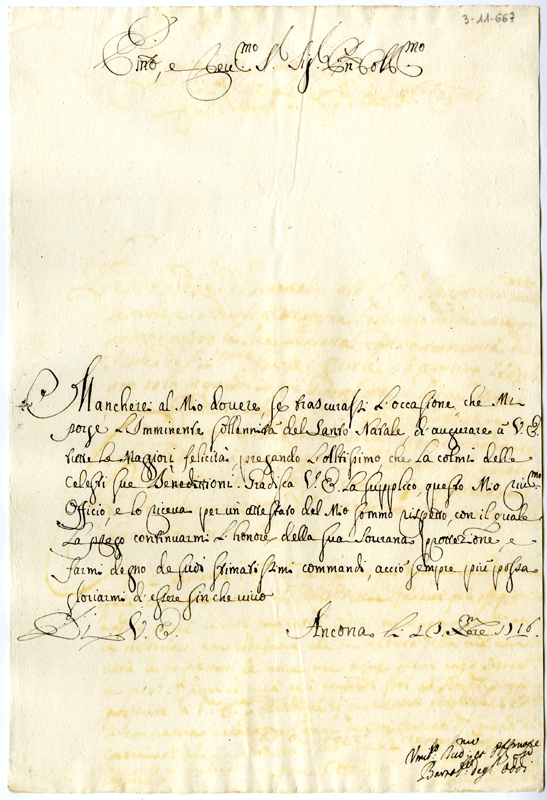 3-11-667
Em̃o, e Reu.mo S.r Sig.r Prōn Coll.mo
Mancherei al Mio douere, se trascurassi l'occasione, che Mi
porge l'Imminente sollennità del Santo Natale di augurare à V. E.
tutte le Maggiori felicità, pregando l'Altissimo che la colmi delle
Celesti sue Benedittioni. Gradisca V. E. la supplico, questo Mio riu.mo
Officio, e lo riceua per un attestato del Mio sommo rispetto, con il quale
La prego continuarmi l'honore della sua Sourana protezione, e
farmi degno de suoi stimatissimi commandi, acciò sempre più possa
gloriarmi d'essere sin che uiuo
Di V. E. Ancona li 1716.
Vmil.mo
degl' Oddi